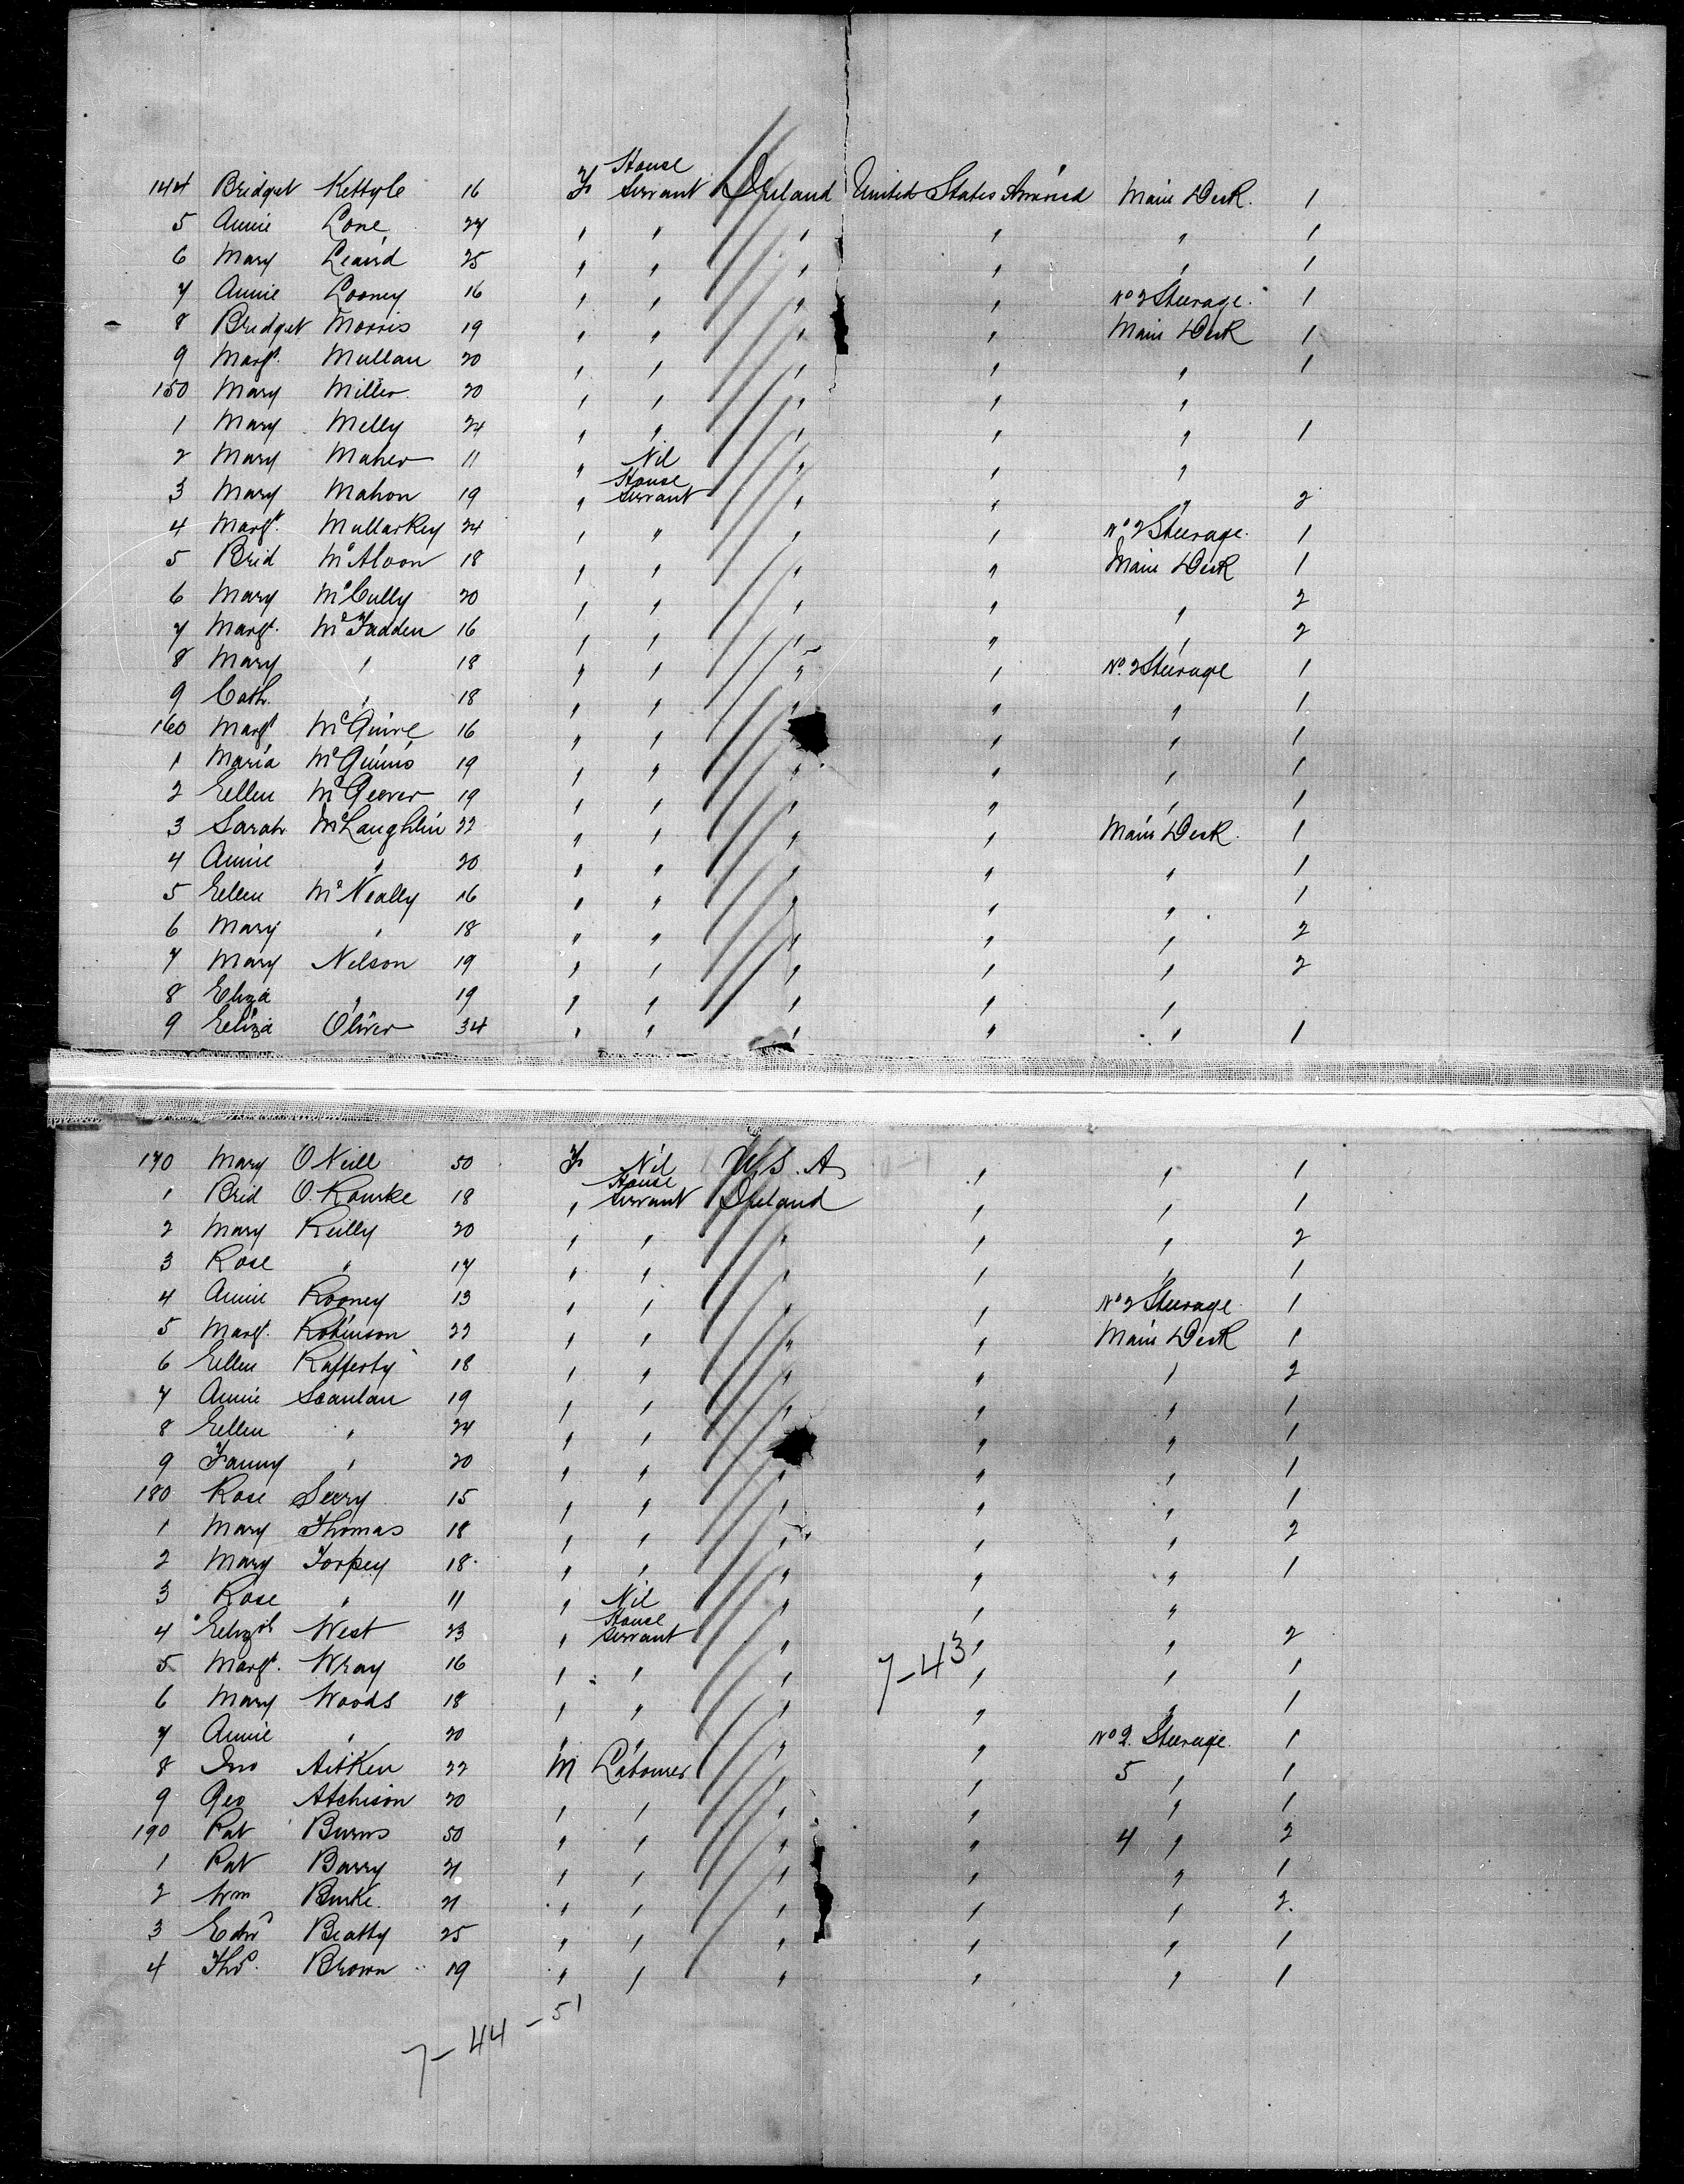 144 Bridget Kettyle 16 F House Servant Ireland United States America Main Deck. 1
5 Annie Lone 24 " " " " " 1
6 Mary Leaird 25 " " " " " 1
7 Annie Looney 16 " " " " No 2 Steerage. 1
8 Bridget Morris 19 " " " " Main Deck 1
9 Margt. Mullan 20 " " " " " 1
150 Mary Miller 20 " " " " "
1 Mary Melly 24 " " " " " 1
2 Mary Maher 11 " Nil " " "
3 Mary Mahon 19 " House Servant " " " 2
4 Margt. Mullarkey 24 " " " " No 2 Steerage. 1
5 Brid McAloon 18 " " " " Main Deck 1
6 Mary McCully 20 " " " " " 2
7 Margt. McFadden 16 " " " " " 2
8 Mary " 18 " " " " No. 2 Steerage 1
9 Cath. " 18 " " " " " 1
160 Margt McGuire 16 " " " " " 1
1 Maria McGinnis 19 " " " " " 1
2 Ellen McGeever 19 " " " " " 1
3 Sarah McLaughlin 22 " " " " Main Deck. 1
4 Annie " 20 " " " " " 1
5 Ellen McNeally 16 " " " " " 1
6 Mary " 18 " " " " " 2
7 Mary Nelson 19 " " " " " 2
8 Eliza " 19 " " " " "
9 Eliza Oliver 34 " " " " " 1
170 Mary O Neill 50 F Nil U.S.A " " 1
1 Brid O.Rourke 18 " House Servant Ireland " " 1
2 Mary Reilly 20 " " " " " 2
3 Rose " 17 " " " " " 1
4 Annie Rooney 13 " " " " No 2 Steerage 1
5 Margt. Robinson 22 " " " " Main Deck 1
6 Ellen Rafferty 18 " " " " " 2
7 Annie Scanlan 19 " " " " " 1
8 Ellen " 24 " " " " " 1
9 Fanny " 20 " " " " " 1
180 Rose Serry 15 " " " " " 1
1 Mary Thomas 18 " " " " " 2
2 Mary Torpey 18 " " " " " 1
3 Rose " 11 " Nil " " "
4 Elizth West 23 " House Servant " " " 2
5 Margt. Wray 16 " " " 7-43 " " 1
6 Mary Woods 18 " " " " " 1
7 Annie " 20 " " " " No 2. Steerage. 1
8 Jno Aitken 22 M Labourer " " 5 " 1
9 Geo Atchison 20 " " " " " 1
190 Pat Burns 50 " " " " 4 " 2
1 Pat Barry 21 " " " " " 1
2 Wm Burke. 21 " " " " " 2.
3 Edwd Beatty 25 " " " " " 1
4 Thos. Brown 19 " " " " " 1
7-44-51